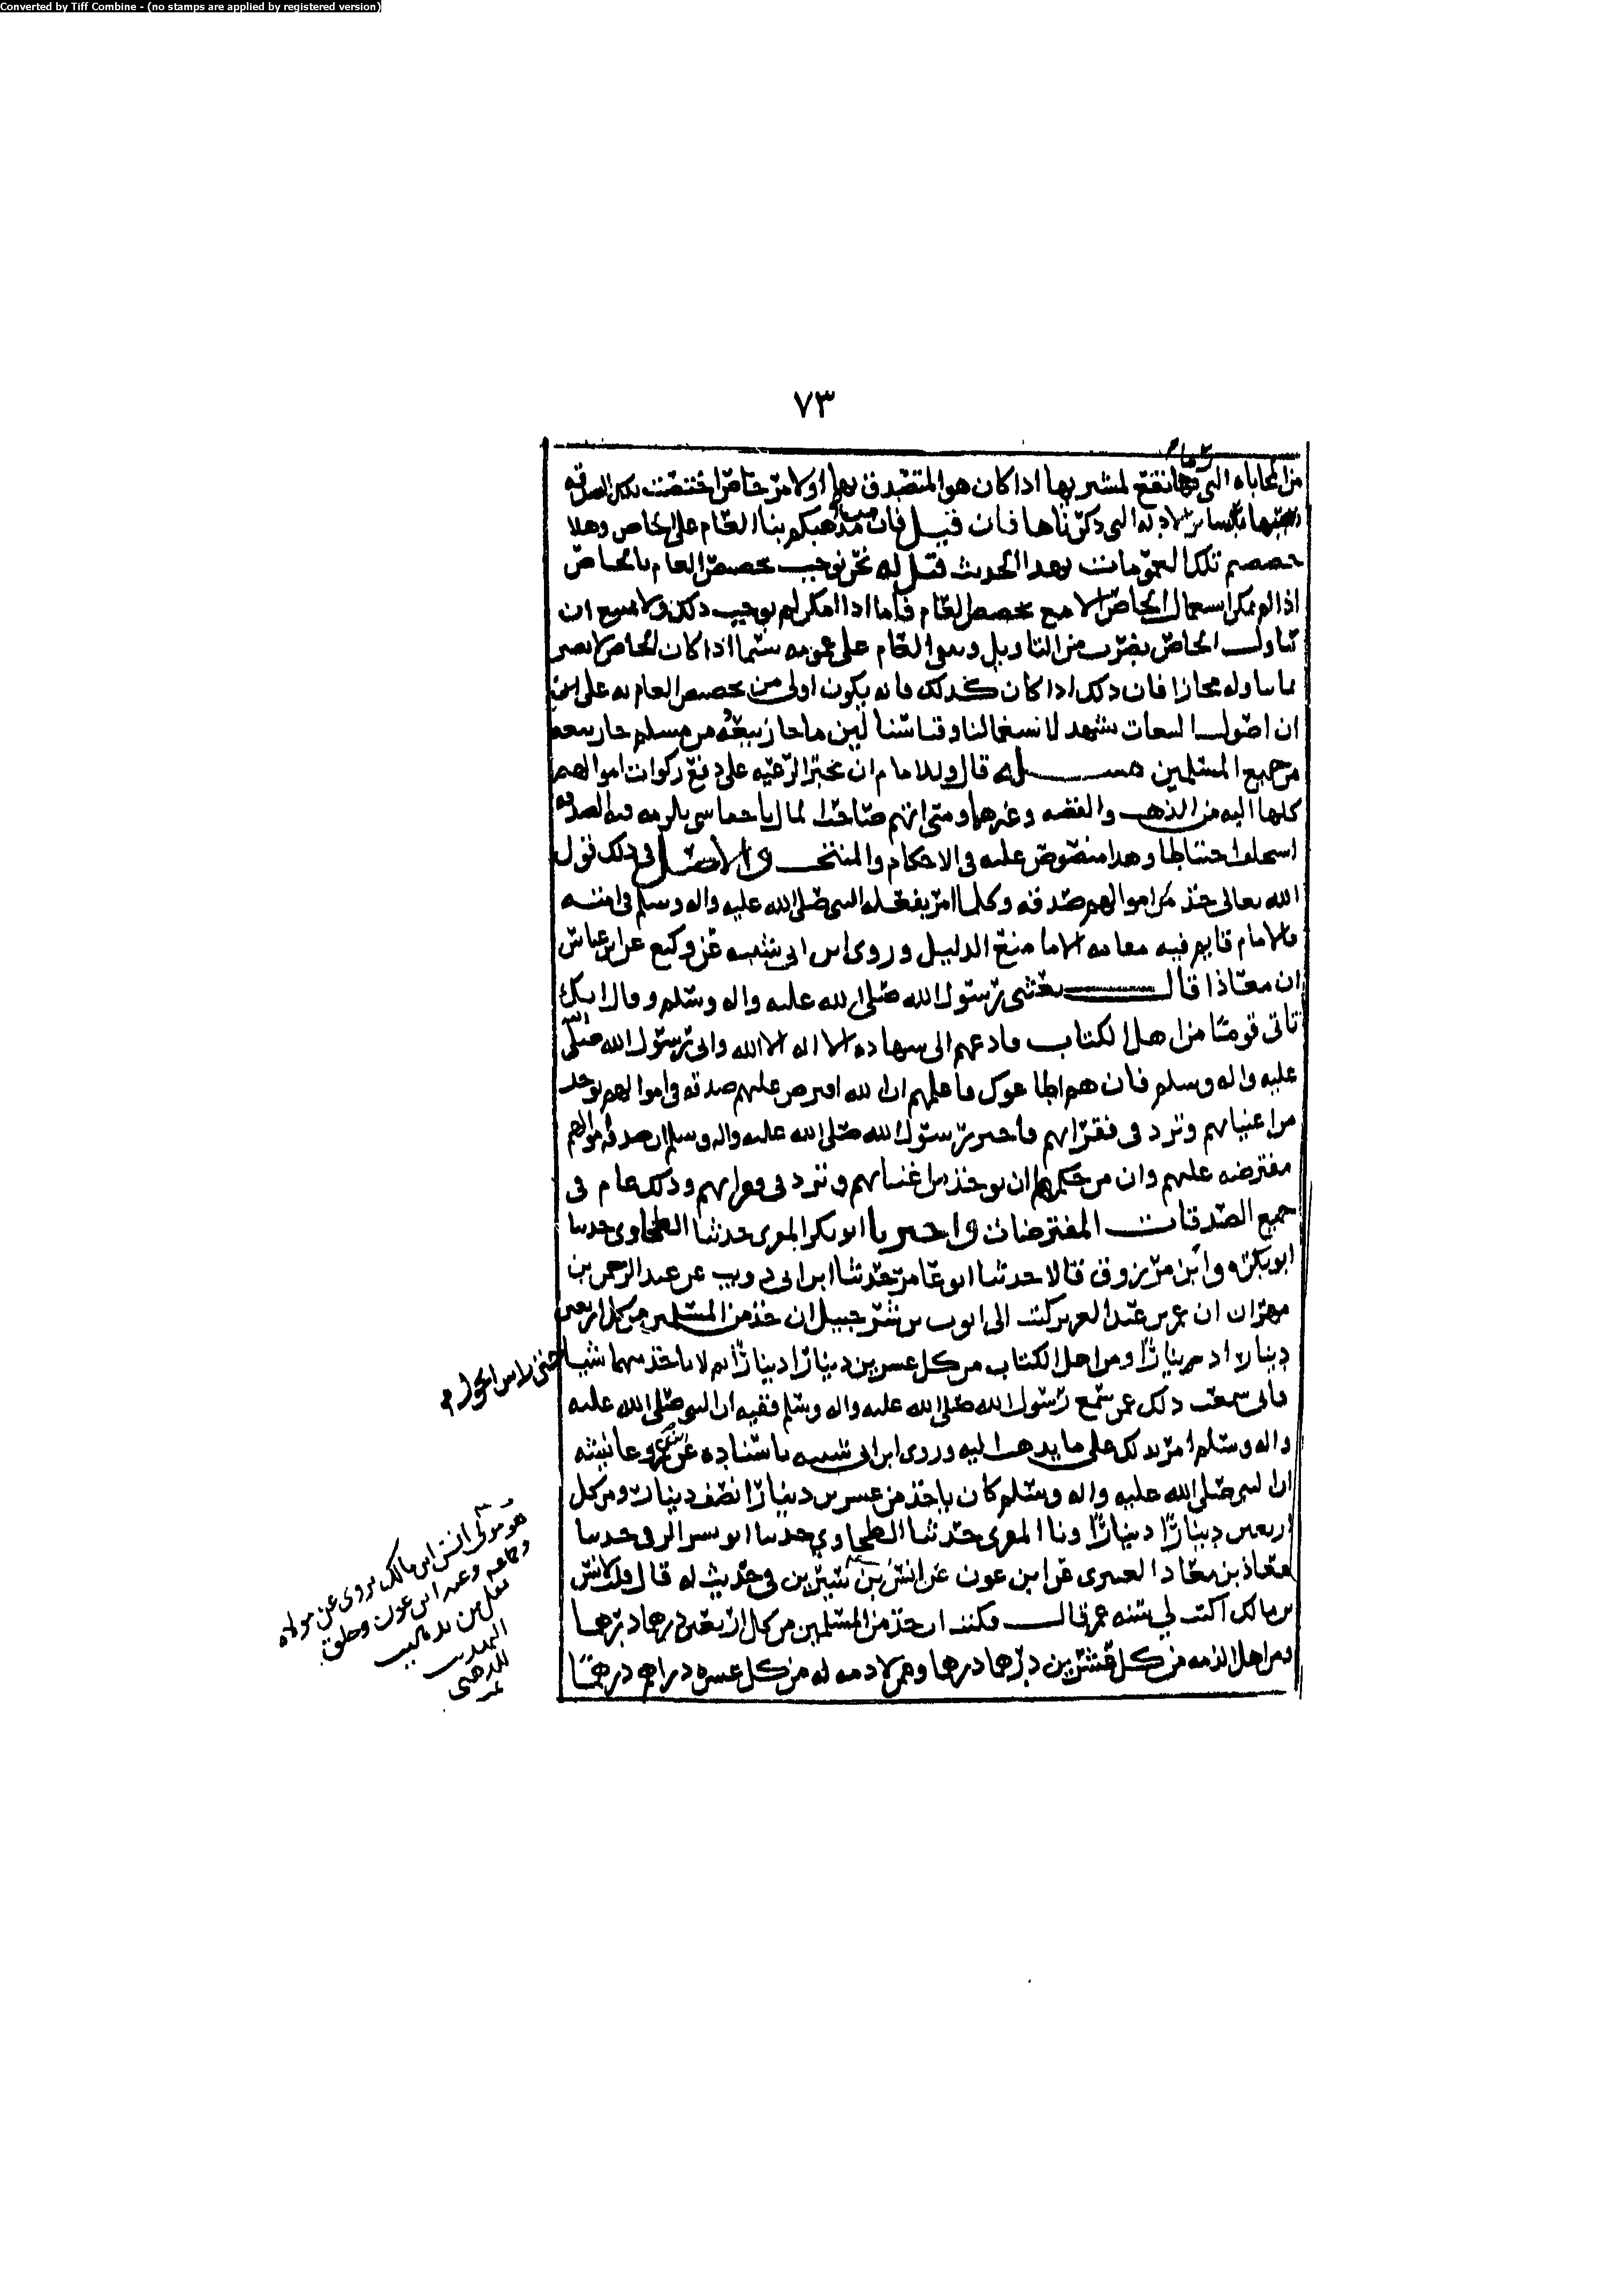 Converted by Tiff Combine - (no stamps are applied by registered version)
٧٣
من المحاباه التي فيها نفع لمشتريها اذا كان هو المتصدق بها اولا من خاص اختصت بتلك الصدقه
بسائر الادله التي ذكرناها فان قيل فان مذهبكم بنا العام على الخاص وهلا
خصصتم تلك العمومات بهذا الحديث قيل له نحن نوجب تخصيص العام بالخاص
اذا لم يمكن استعمال الخاص الا مع تخصيص العام فأما اذا امكن لم نوجب ذلك ولا يمتنع ان
نتاول الخاص بضرب من التاويل ويبقى العام على عمومه سيما اذا كان الخاص لا يصير
بما يتاوله مجازا فان ذلك اذا كان كذلك فانه يكون اولى من تخصيص العام به على ان
ان اصول البيعات تشهد لاستعمالنا وقياسنا لأن ما جاز بيعه من مسلم جاز بيعه
من جميع المسلمين مسـله قال وللامام ان يجبر الرعيه على دفع زكوات اموالهم
كلها اليه من الذهب والفضه وغيرهما ومتى اتهم صاحب المال باخفا شي يلزمه فيه الصدقه
استحلفه احتياطا وهذا منصوص عليه في الاحكام والمنتخب والاصل في ذلك قول
الله تعالى خذ من اموالهم صدقه وكلما امر بفعله النبي صلى الله عليه واله وسلم في امته
فالامام قايم فيه مقامه الا ما منع الدليل وروى ابن ابي شيبه عن وكيع عن ابن عباس
ان معاذا قال بعثني رسول الله صلى الله عليه واله وسلم وقال انك
تاتي قوما من اهل الكتاب فادعهم الى شهاده الا اله الا الله واني رسول الله صلى الله
عليه واله وسلم فان هم اطاعوك فاعلمهم ان الله افترض عليهم صدقه في اموالهم توخذ
من اغنيائهم وترد في فقرائهم فاخبر رسول الله صلى الله عليه واله وسلم ان صدقه اموالهم
مفترضه عليهم وان من حكمها ان توخذ من اغنيائهم وترد في فقرائهم وذلك عام في
جميع الصدقات المفترضات واخبرنا ابو بكر المقري حدثنا الطحاوي حدثنا
ابو بكره وابن مرزوق قالا حدثنا ابو عامر حدثنا ابن ابي ذويب عن عبد الرحمن بن
مهران ان عمر بن عبد العزيز كتب الى ايوب بن شرحبيل ان خذ من المسلمين من كل اربعين
دينارا دينارا ومن اهل الكتاب من كل عشرين دينارا دينارا ثم لا تاخذ منهما شيا حتى راس الحول
فاني سمعت ذلك عمن سمع رسول الله صلى الله عليه واله وسلم ففيه ان النبي صلى الله عليه
واله وسلم امر بذلك على ما يذهب اليه وروى ابن ابي شيبه باسناده عن عمر وعائشه
ان النبي صلى الله عليه واله وسلم كان ياخذ من عشرين دينارا نصف دينار ومن كل
اربعين دينارا دينارا ونا المقري حدثنا الطحاوي حدثنا ابو بشر الرقي حدثنا
معاذ بن معاذ العنبري عن ابن عون عن انس بن سيرين في حديث له قال قلت لانس
بن مالك اكتب لي سنه عمر قال فكتب ان خذ من المسلمين من كل اربعين درهما درهما
ومن اهل الذمه من كل عشرين درهما درهما وممن لا ذمه له من كل عشره دراهم درهما
هو مولى انس ابن مالك يروى عن مولاه
وعنه ابن عون وخلق
نقل من
للذهبي